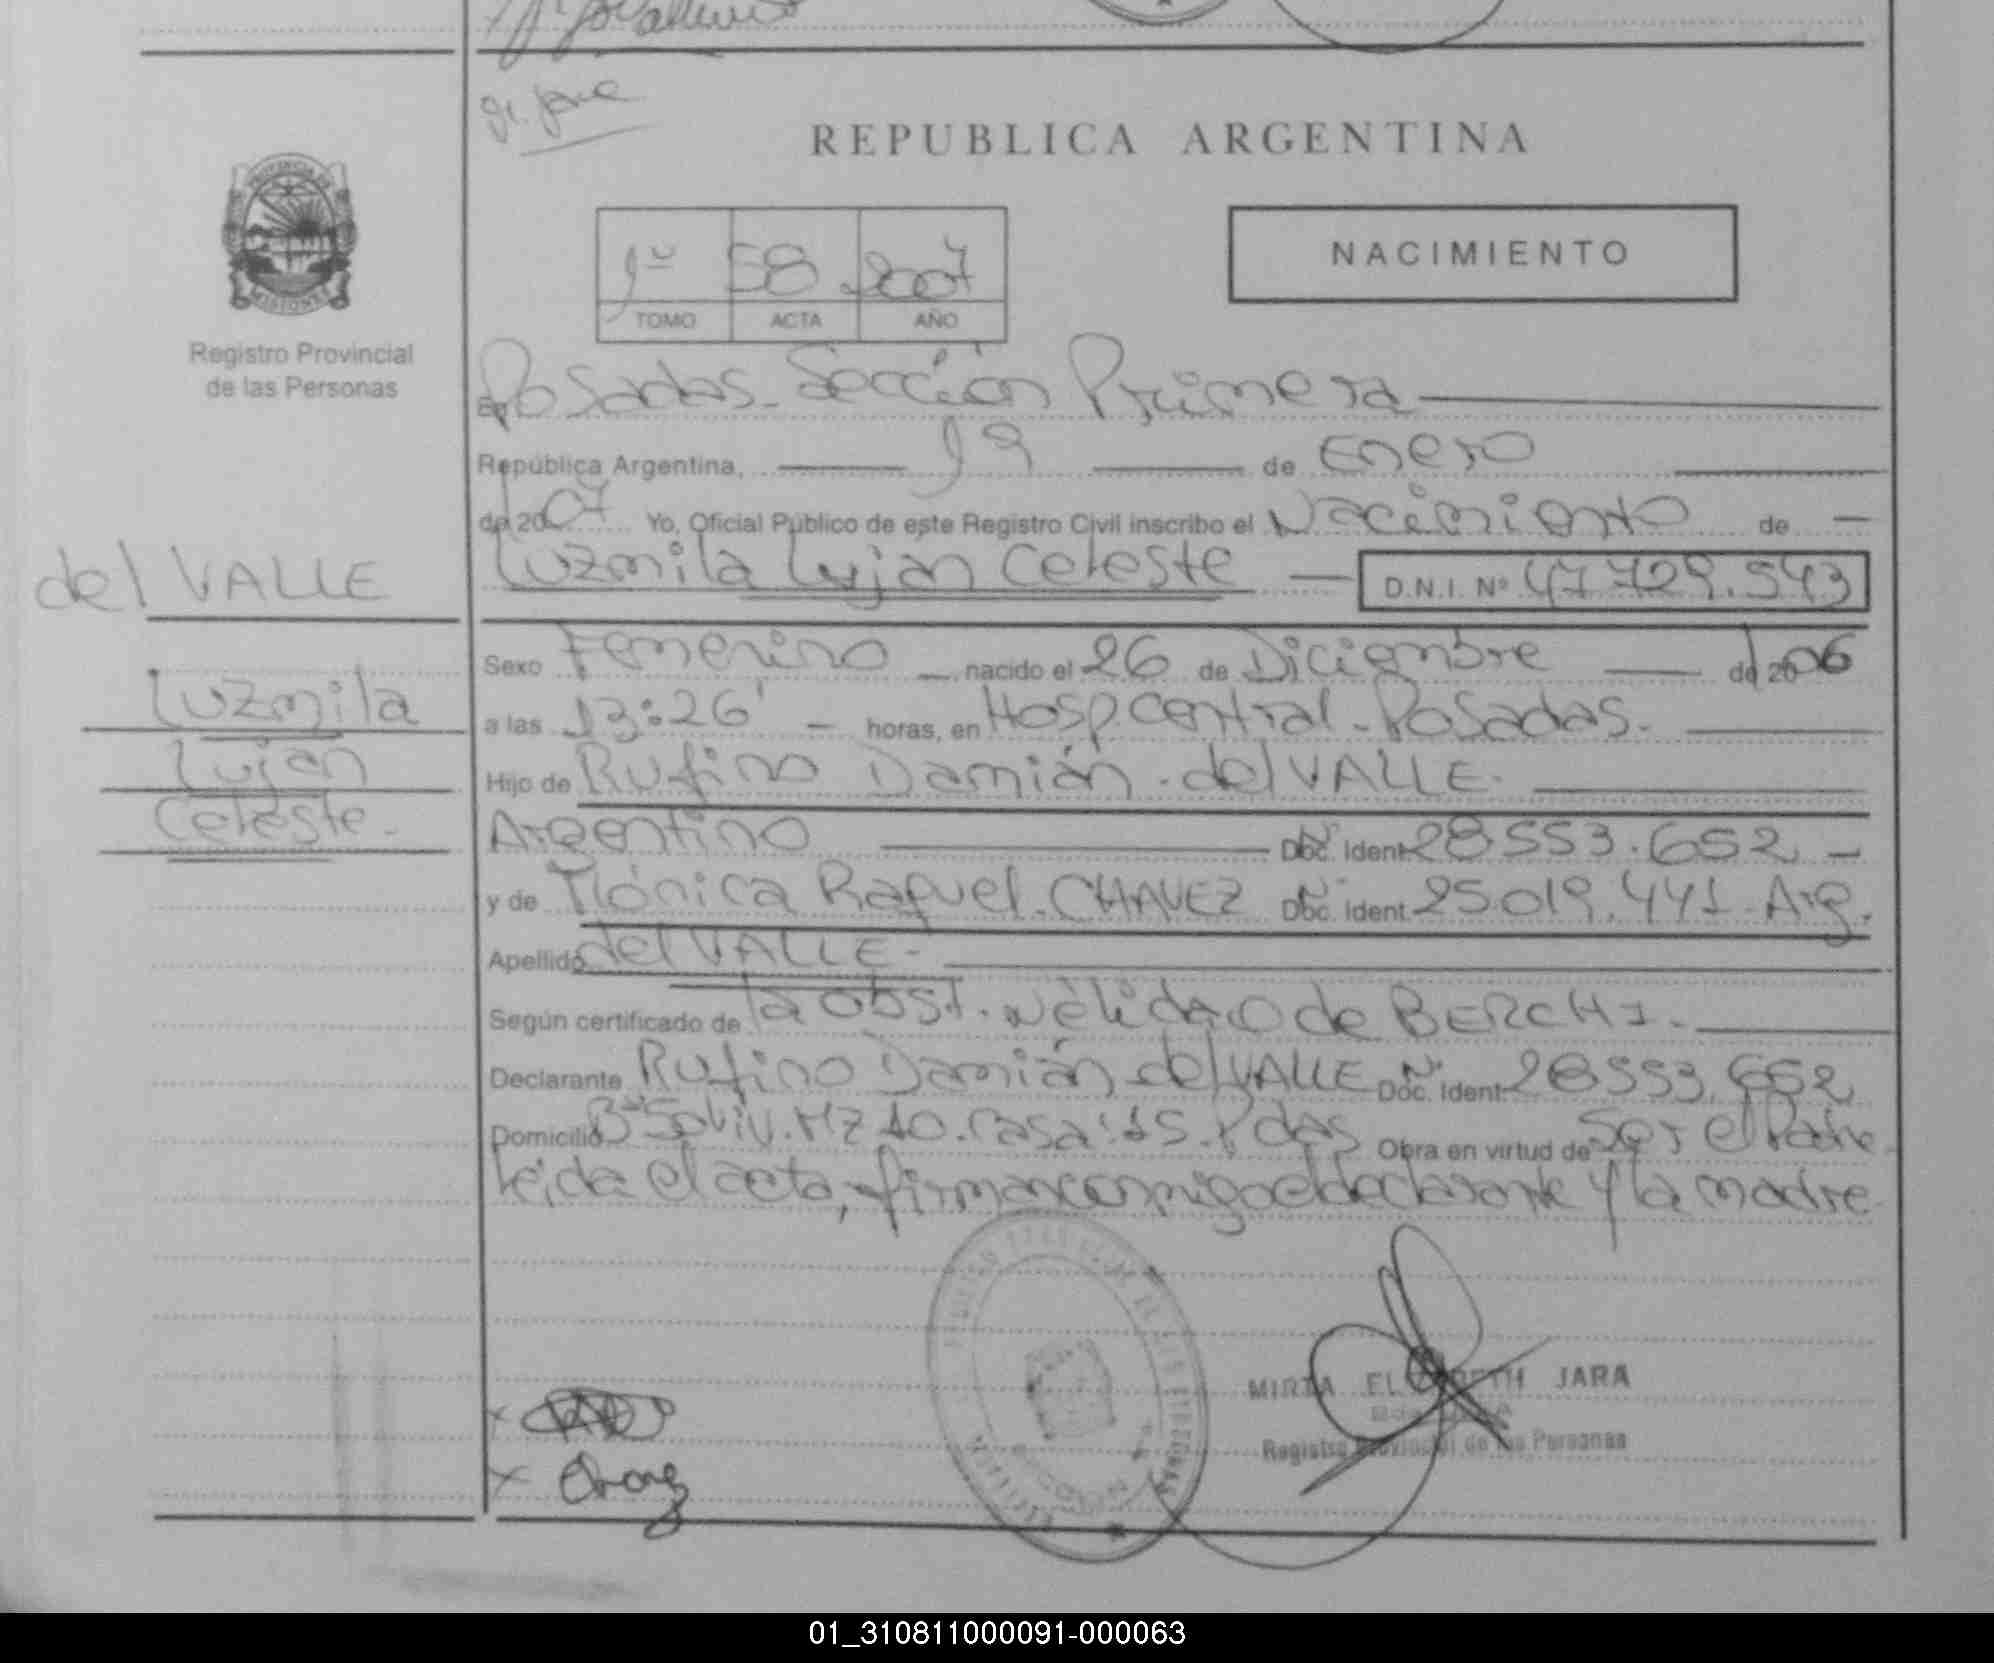 REPUBLICA ARGENTINA
PROVINCIA DE
MISIONES
Registro Provincial
de las Personas
1º 58 2007
TOMO ACTA AÑO
NACIMIENTO
En Posadas. Sección Primera
República Argentina, 19 de Enero
de 2007 Yo, Oficial Público de este Registro Civil inscribo el Nacimiento de
Luzmila Luján Celeste D.N.I. Nº 47.729.543
del VALLE
Luzmila
Luján
Celeste.
Sexo Femenino nacido el 26 de Diciembre de 2006
a las 13:26' horas, en Hosp. Central - Posadas.
Hijo de Rufino Damián del VALLE.
Argentino Doc. Ident. 28553.652
y de Mónica Raquel CHAVEZ Doc. Ident. 25019.441 Arg.
Apellido del VALLE.
Según certificado de la obst. Nélida O de BERCHI.
Declarante Rufino Damián del VALLE Doc. Ident. 28553.652
Domicilio Bº 50 Viv. Mz 10. Casa: 15. Pdas Obra en virtud de Ser el Padre
Leída el acta, firman conmigo el declarante y la madre
MIRTA ELIZABETH JARA
Registro Provincial de las Personas
01_310811000091-000063